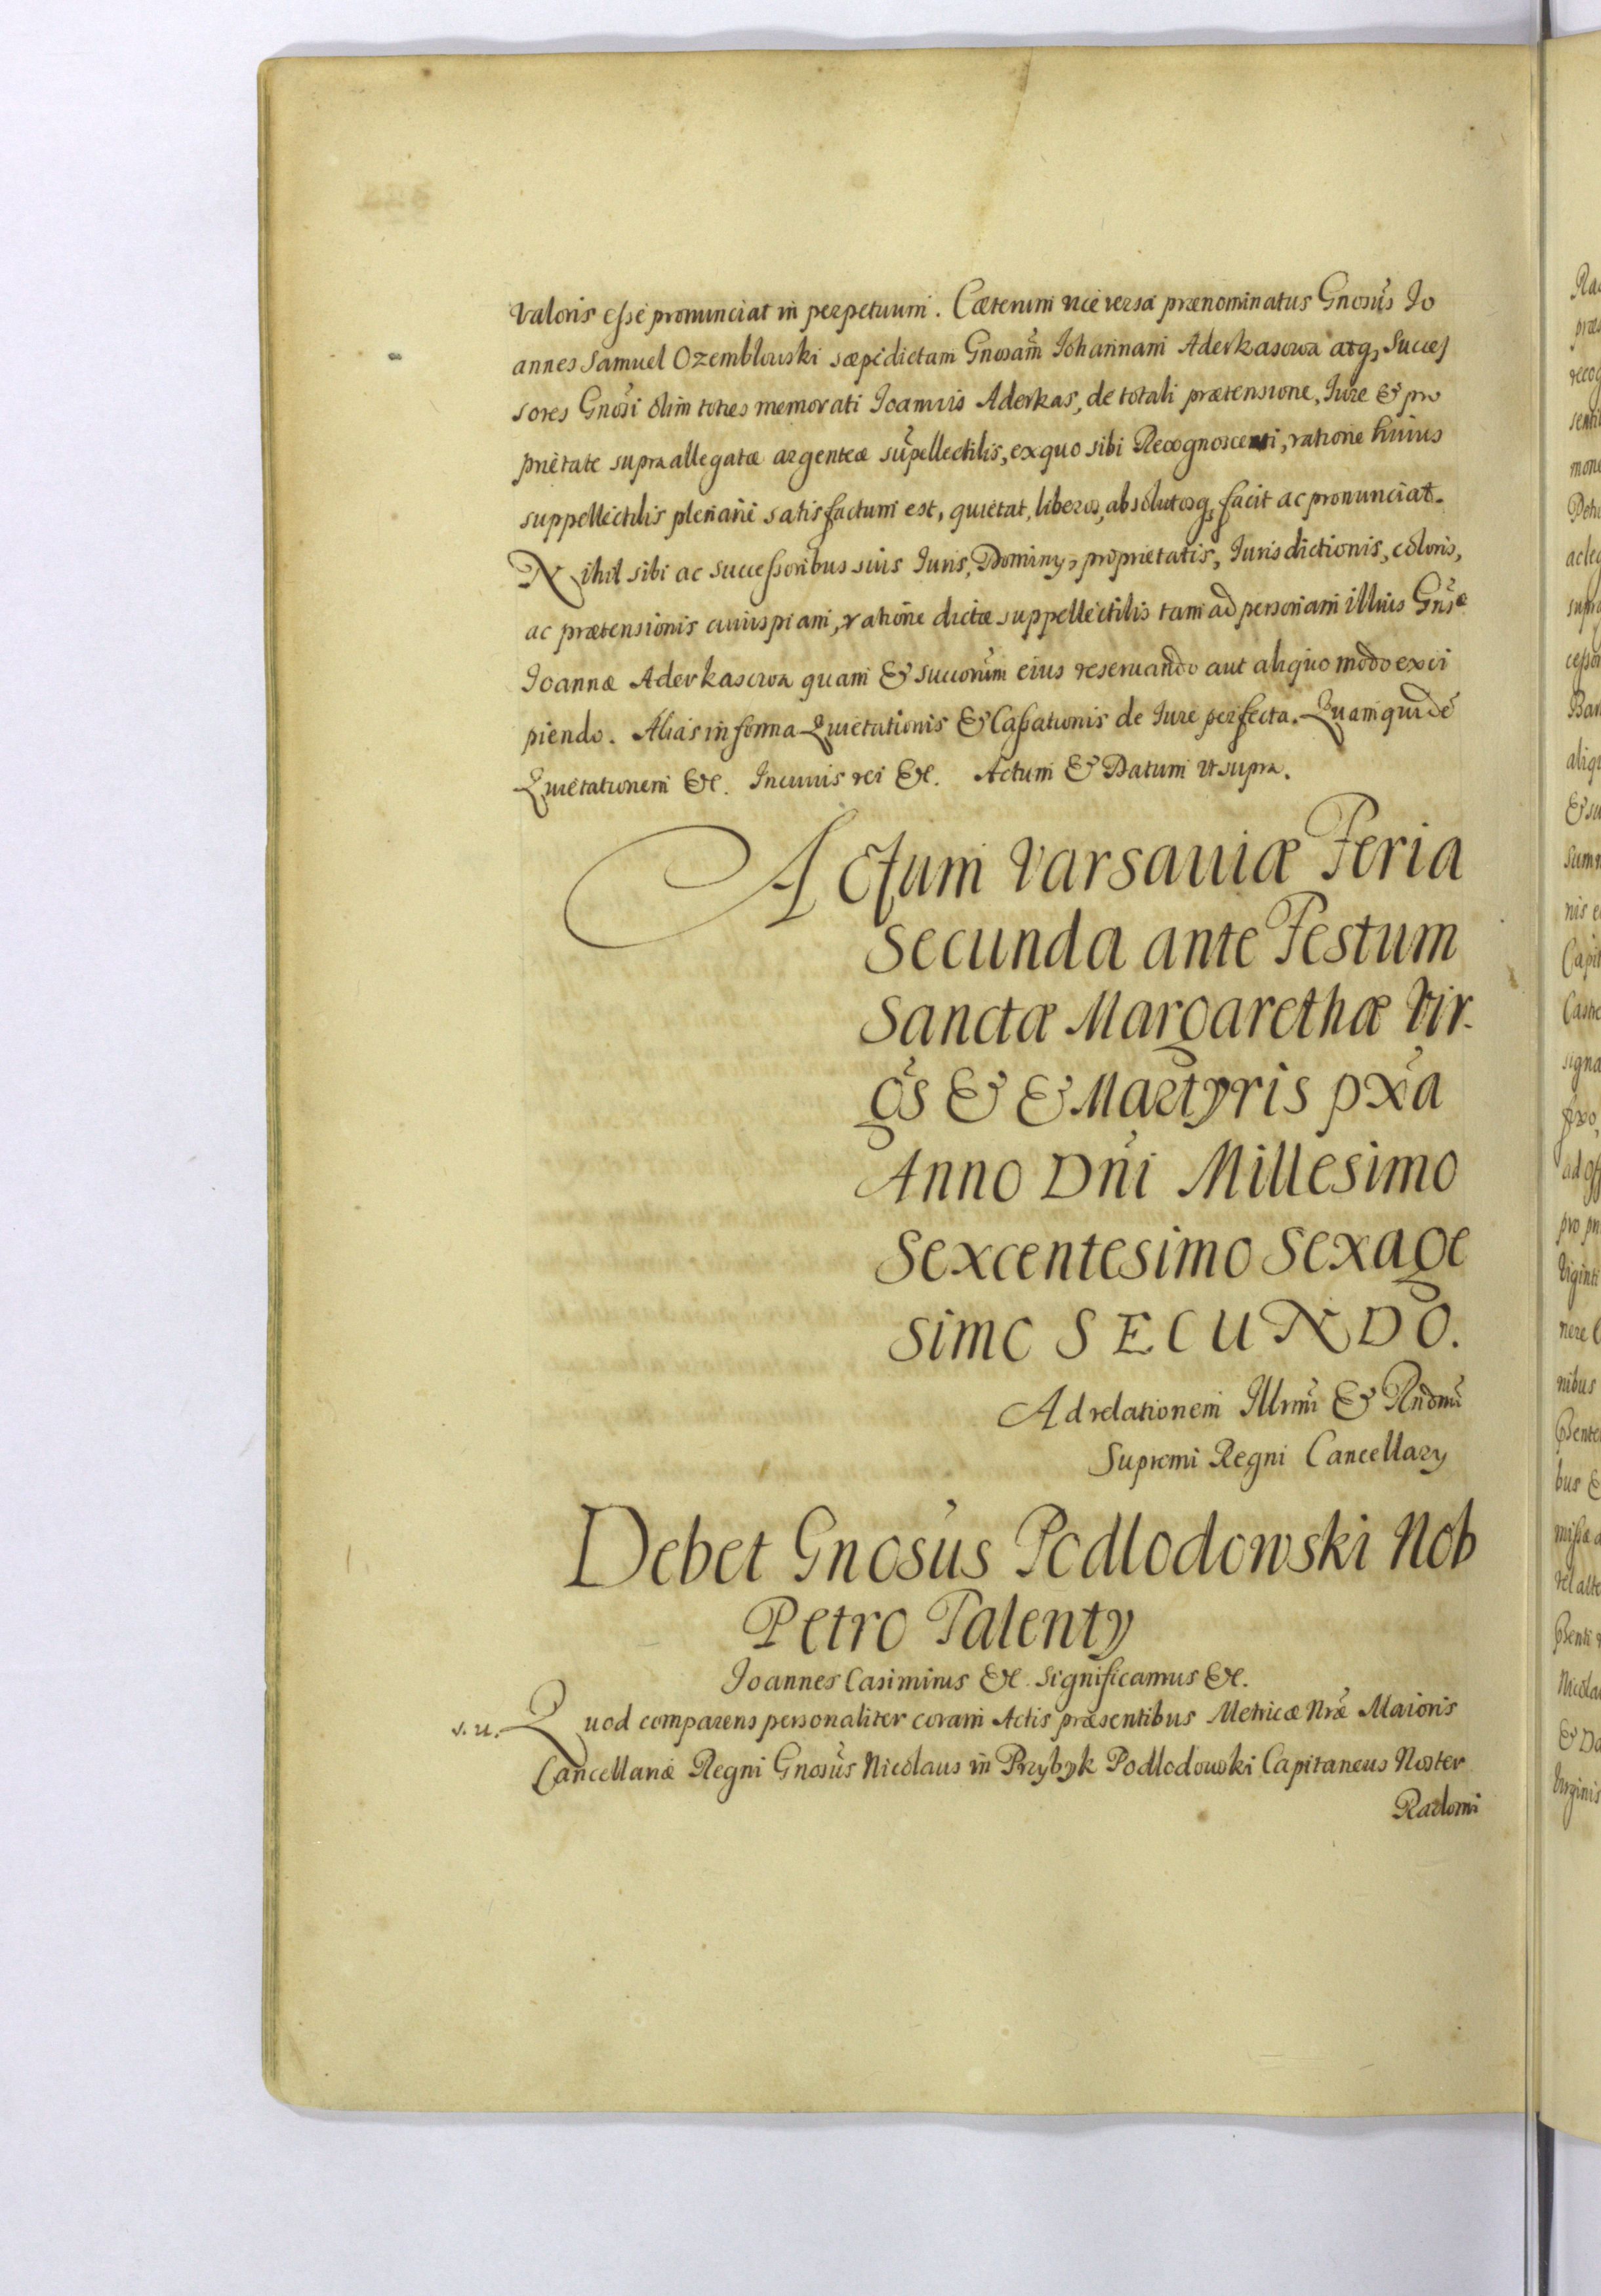 valoris esse pronunciat in perpetuum. Cæterum vice versa prænominatus Gnosus Jo
annes Samuel Ozemblowski sæpedictam Gnosam Johannam Aderkasowa atq, Succes
sores Gnosi olim toties memorati Joannis Aderkas, de totali prætensione, Iure & pro
prietate supra allegatæ argenteæ supellectilis, ex quo sibi Recognoscenti, ratione huius
suppellectilis plenarie satisfactum est, quietat, liberos, absolutosq, facit ac pronunciat.
Nihil sibi ac successoribus suis Iuris, Dominy, proprietatis, Iurisdictionis, coloris,
ac prætensionis cuiuspiam, ratione dictæ suppellectilis tam ad personam illius Gnsæ
Joannæ Aderkasowa quam & succorum eius reservando aut aliquo modo exci
piendo. Alias in forma Quietationis & Cassationis de Iure perfecta. Quam quidē
Quietationem &c. In cuius rei &c. Actum & Datum ut supra.
Actum Varsaviæ Feria
Secunda ante Festum
Sanctæ Margarethæ Vir-
gs & & Martyris pxa
Anno Dni Millesimo
Sexcentesimo Sexage
simo SECUNDO.
Ad relationem Illrmi & Rndmi
Supremi Regni Cancellary
Debet Gnosus Podlodowski Nob
Petro Talenty
Joannes Casimirus &c. Significamus &c.
s. u. Quod comparens personaliter coram Actis præsentibus Metricæ Nræ Maioris
Cancellariæ Regni Gnosus Nicolaus in Przybyk Podlodowski Capitaneus Noster
Radomi